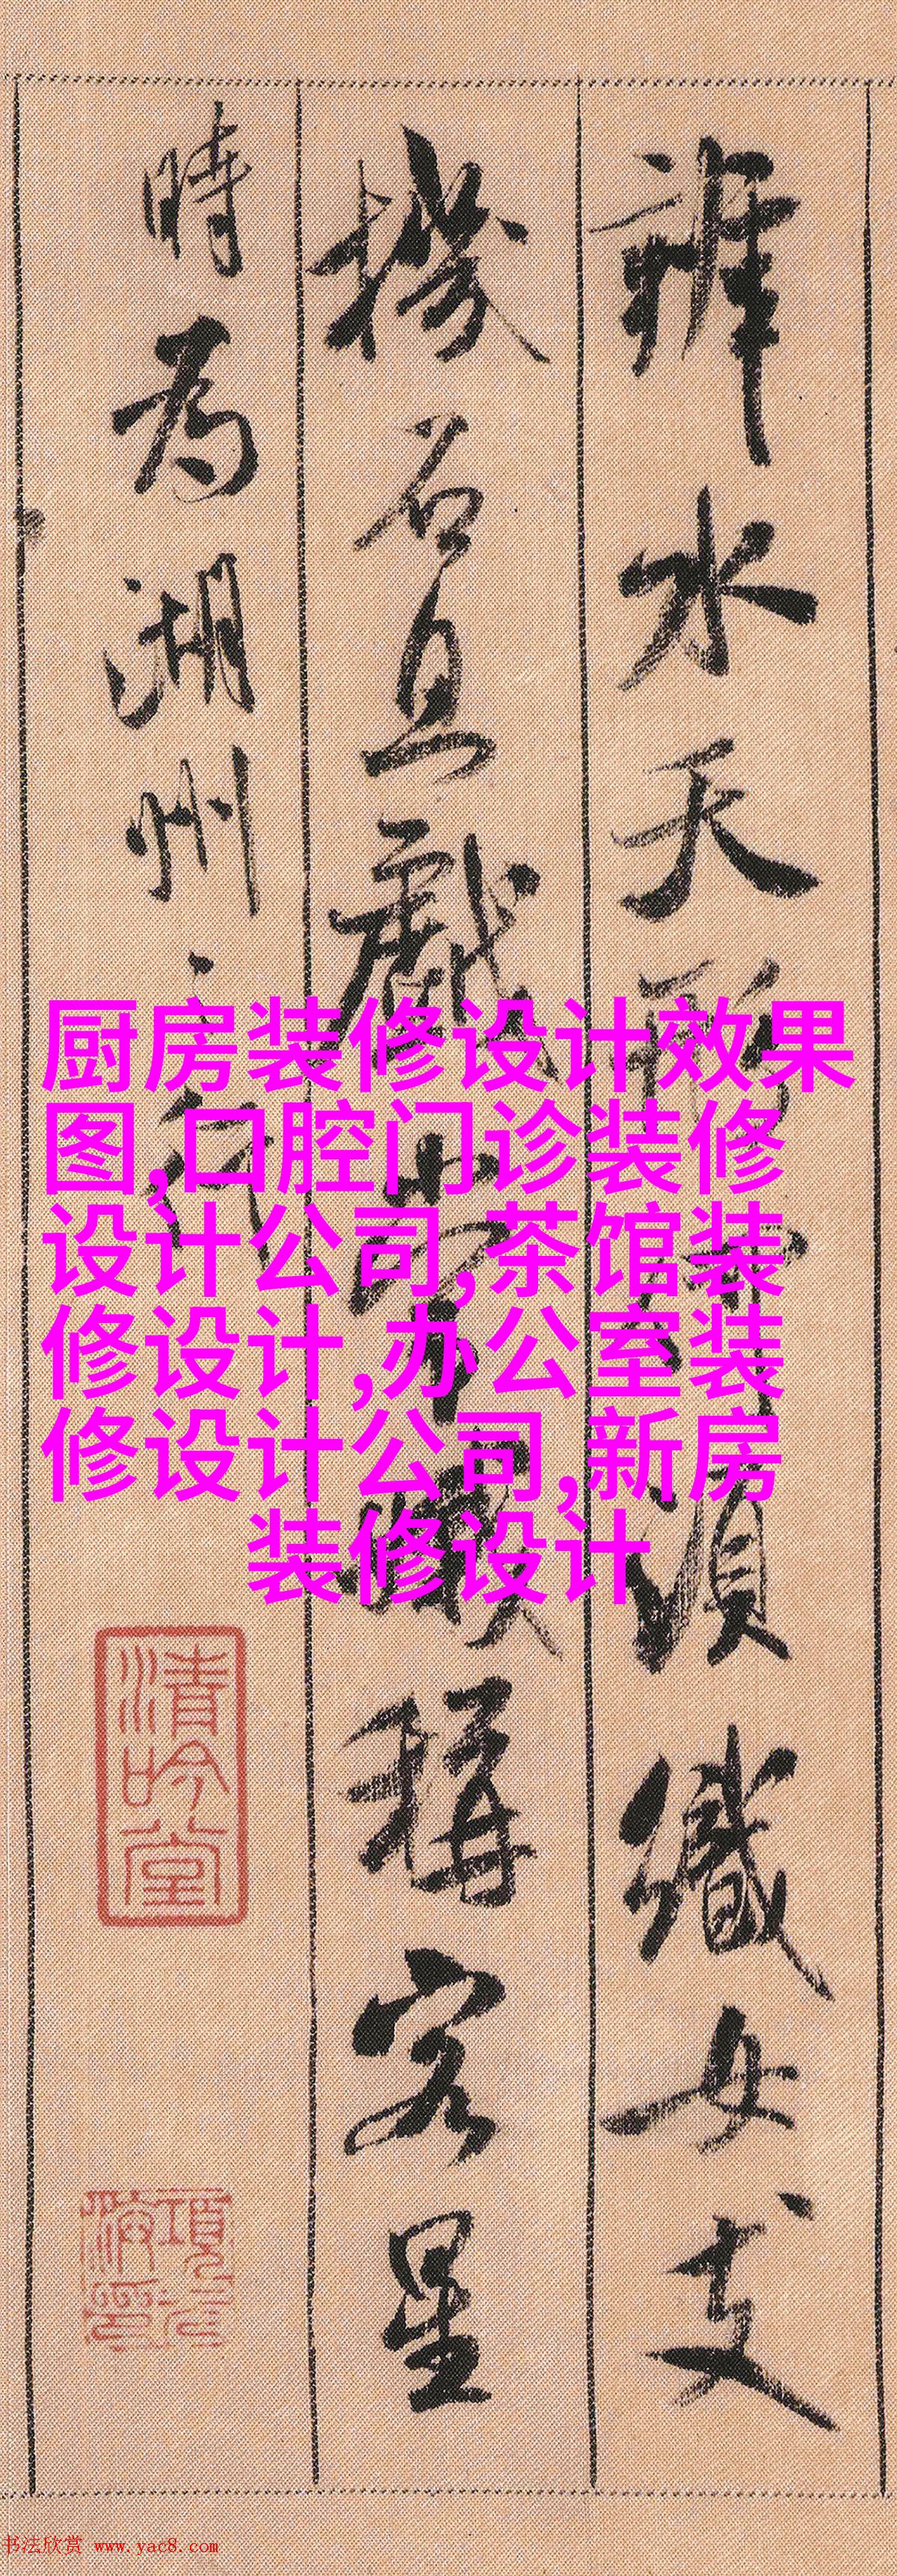 辨水天形何須織女支
機石且戲常娥稱客星
時為湖州之行
厨房装修设计效果
图,口腔门诊装修
设计公司,茶馆装
修设计,办公室装
修设计公司,新房
装修设计
清吟堂
項元汴印
书法欣赏 www.yac8.com